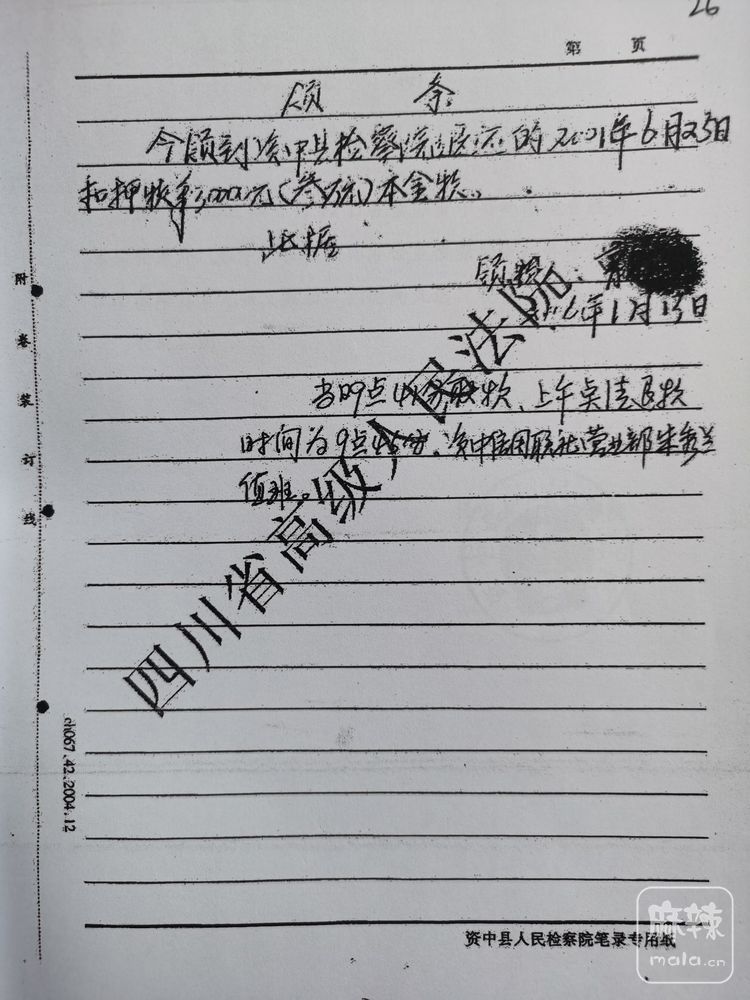 26
第 页
领 条
今领到资中县检察院退还的2001年6月23日
扣押收条3000元(叁万元)本金款。
此据
领款人:
年1月13日
当日9点 取款、上午卓清退款
时间为9点45分。资中信用联社营业部朱秀兰
值班。
附卷装订线
四川省高级人民法院
ch067.42.2004.12
资中县人民检察院笔录专用纸
麻辣
mala.cn